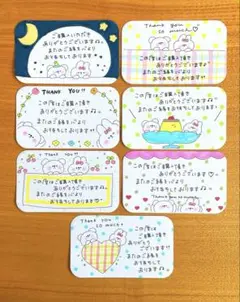 ご購入いただき
ありがとうございます
またのご縁を心より
お待ちしております
Thank you
so much
この度はご購入頂き
ありがとうございます
またのご縁を心より
お待ちしております
THANK YOU!!
この度はご購入頂き
ありがとうございます
またのご縁を心より
お待ちしております
この度はご購入頂き
ありがとうございます
またのご縁を心より
お待ちしております
THANK YOU
この度はご購入頂き
ありがとうございます
またのご縁を心より
お待ちしております
この度はご購入頂き
ありがとうございます
またのご縁を心より
お待ちしております
Thank you so much
Thank you
so much
この度は
ご購入頂き
ありがとう
ございます
またのご縁を心より
お待ちしております